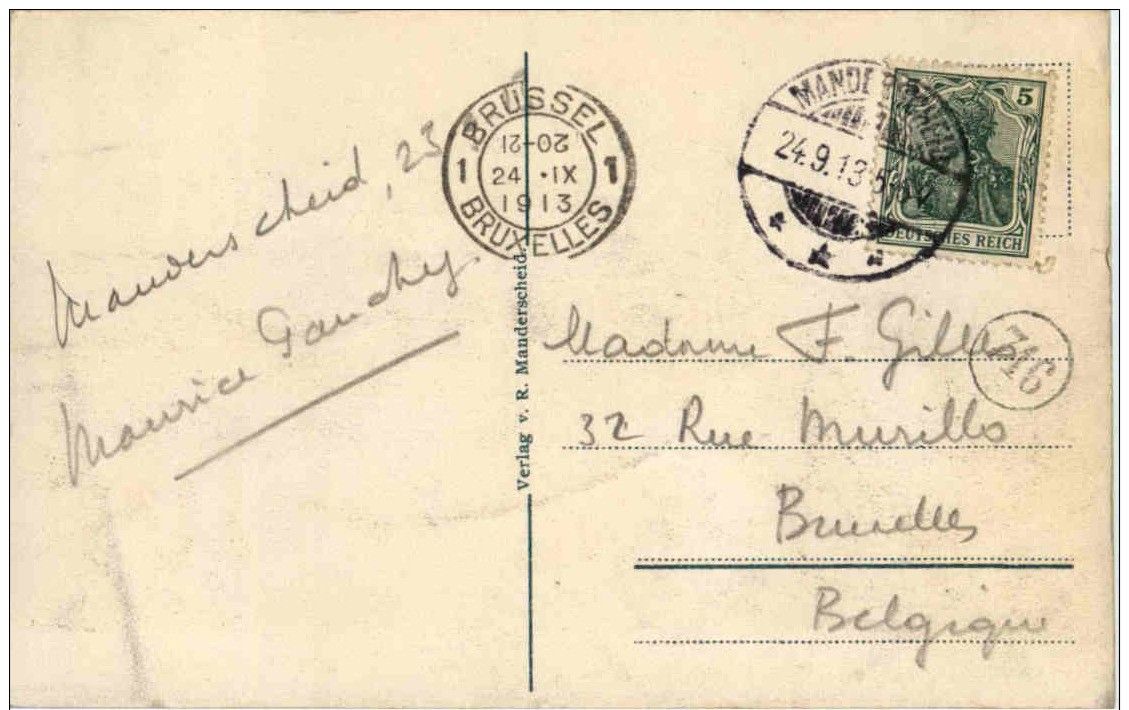 Manderscheid, 23
Maurice Gauchez
Verlag v. R. Manderscheid.
BRÜSSEL
21-20
1 24 · IX 1
1913
BRUXELLES
MANDERSCHEID
24.9.13
5
DEUTSCHES REICH
Madame F. Gilles
316
32 Rue Murillo
Bruxelles
Belgique